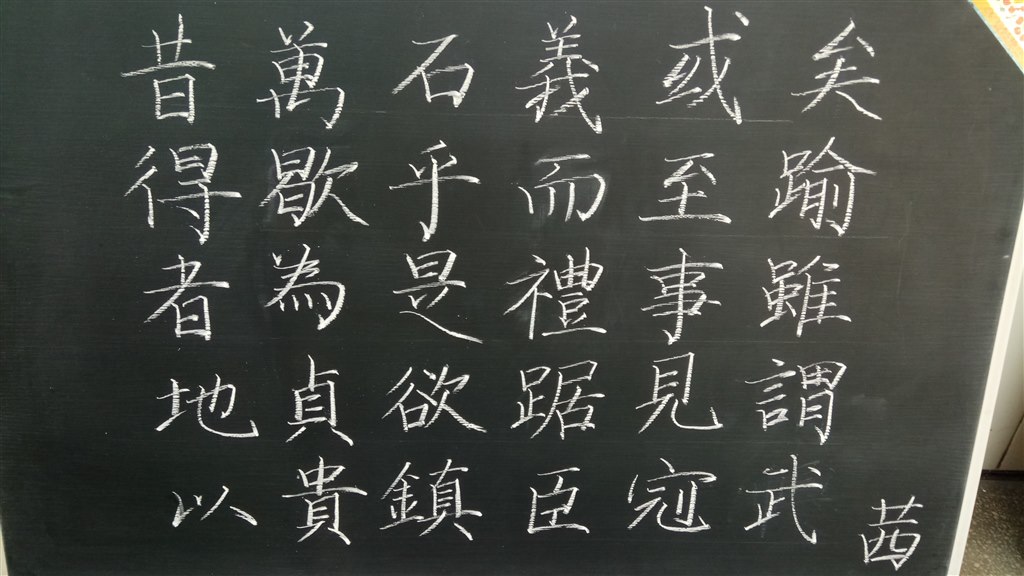 昔得者地以
萬歇為貞貴
石乎是欲鎮
義而禮踞臣
或至事見寇
矣踰雖謂武
茜